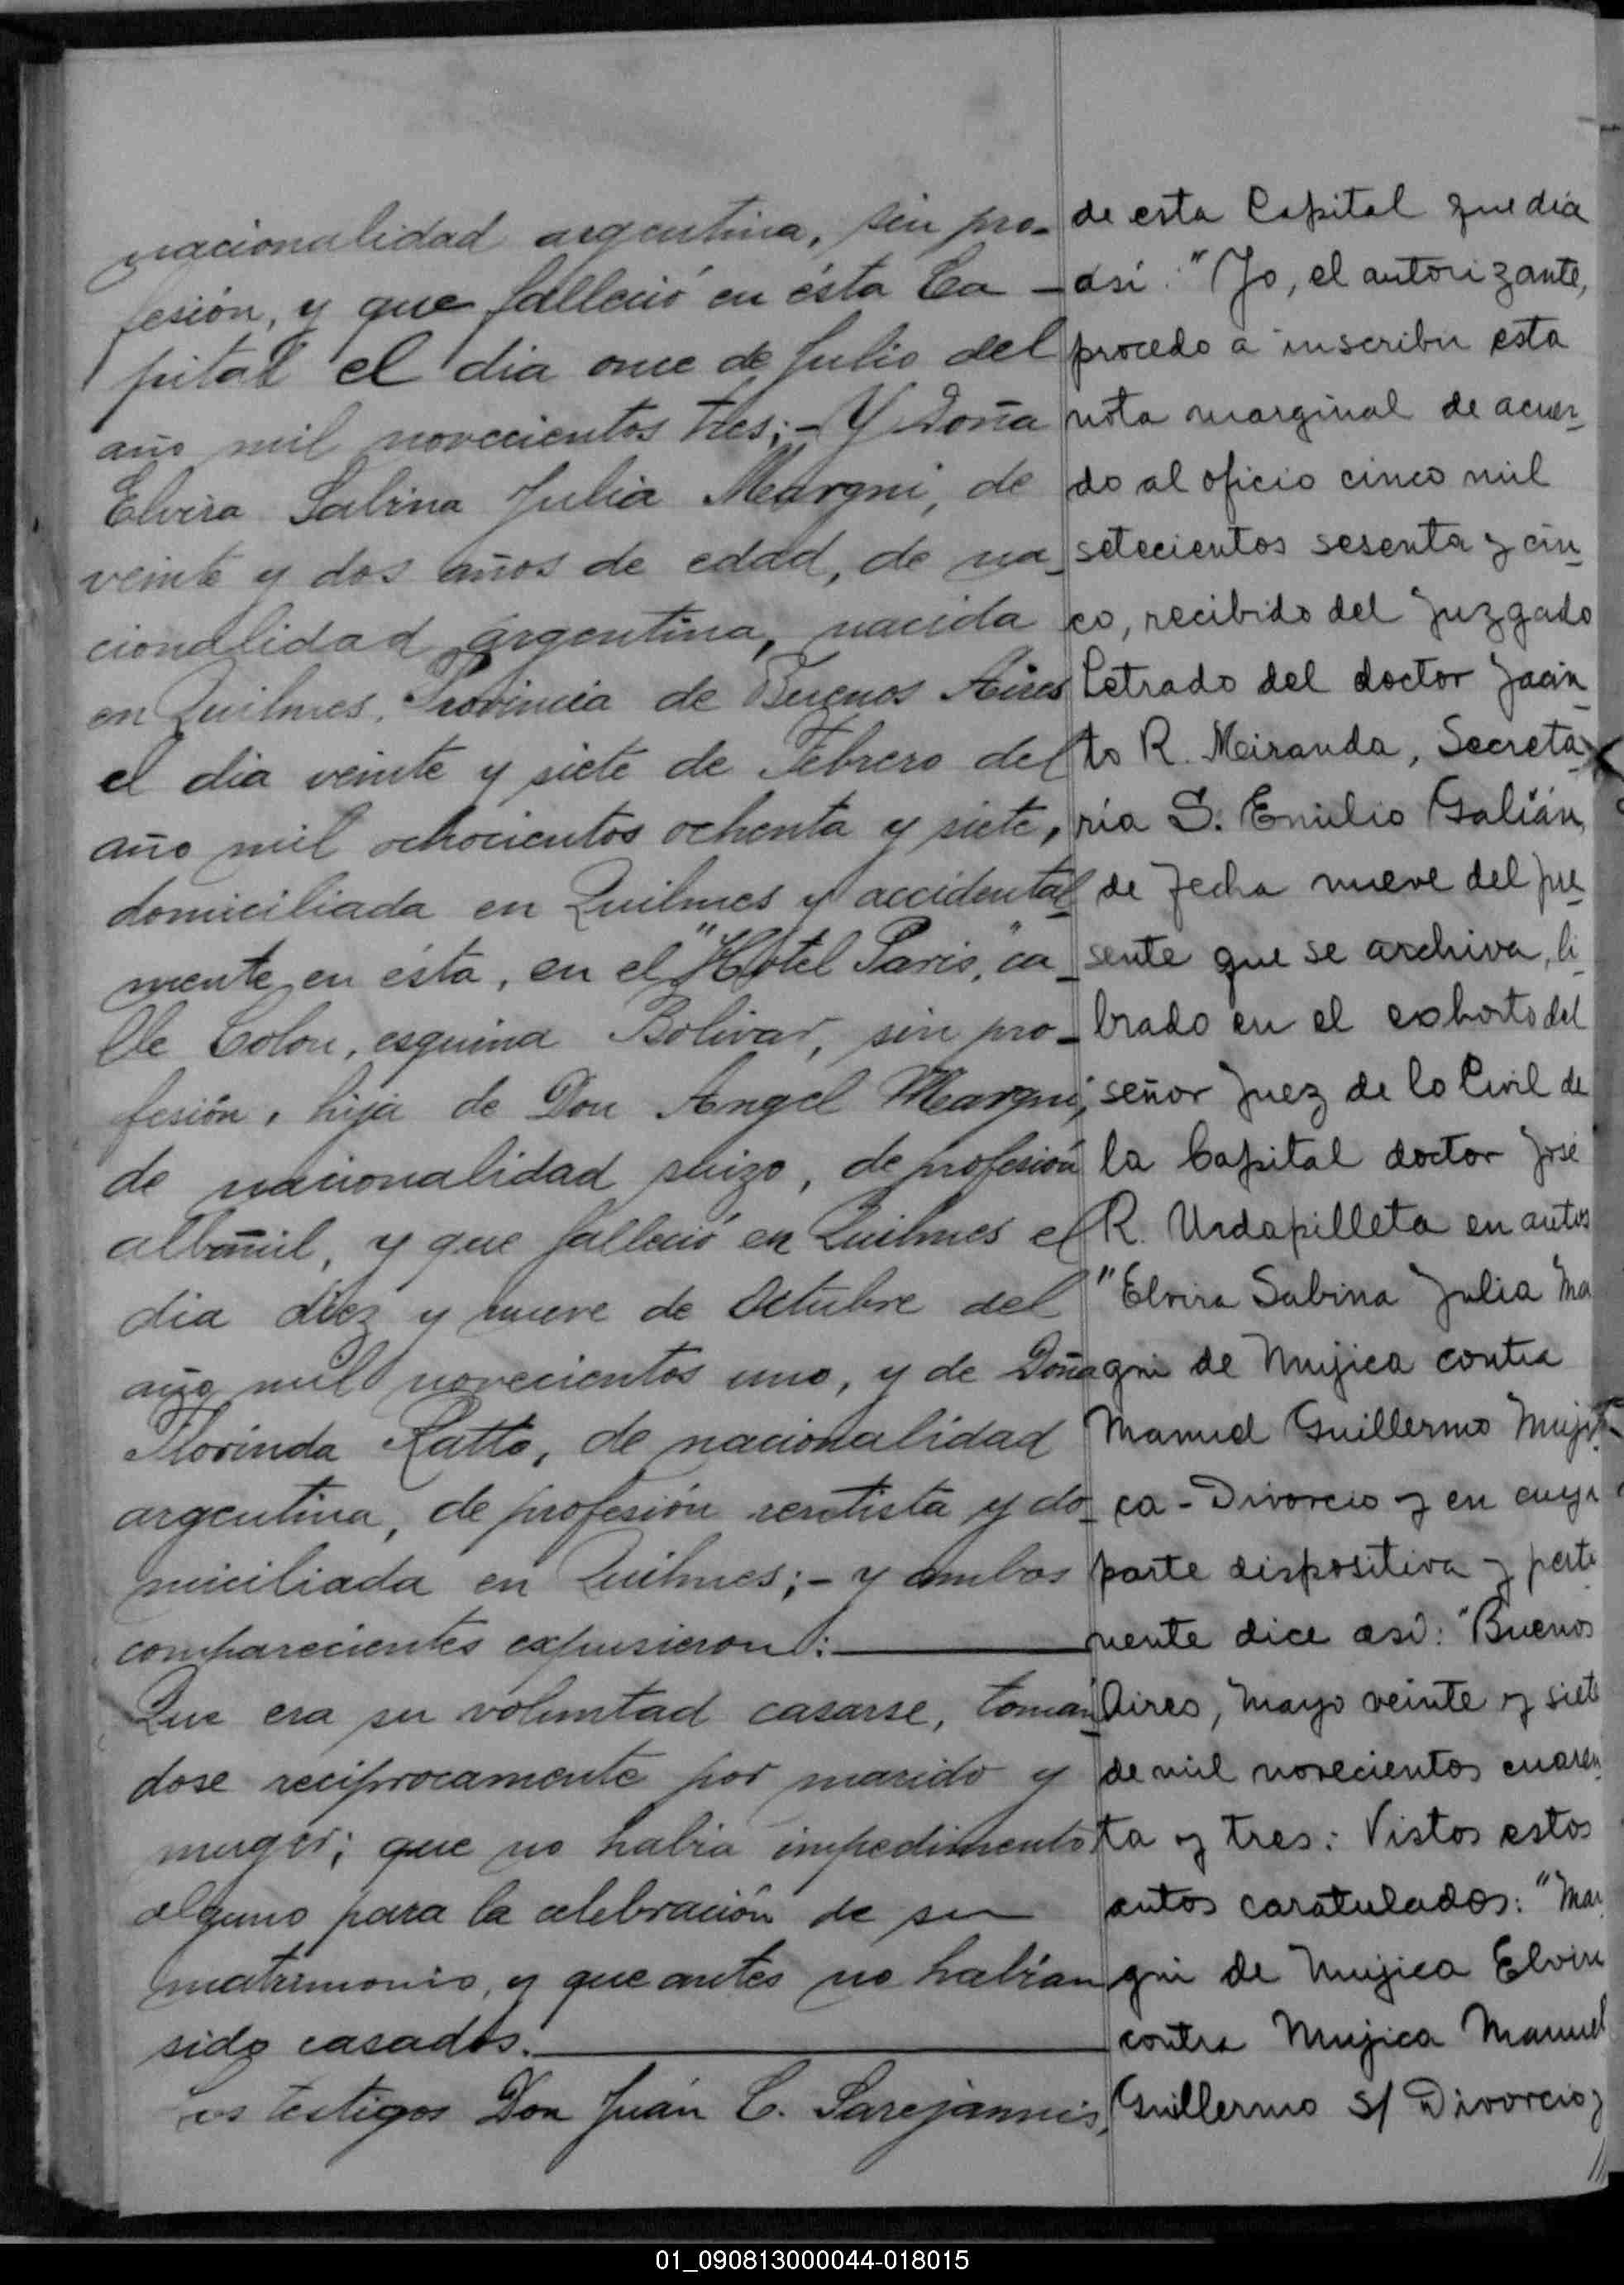 nacionalidad argentina, sin pro-
fesión, y que falleció en ésta Ca-
pital el dia once de Julio del
año mil novecientos tres;- Y Doña
Elvira Sabina Julia Margni, de
veinte y dos años de edad, de na-
cionalidad argentina, nacida
en Quilmes, Provincia de Buenos Aires
el dia veinte y siete de Febrero del
año mil ochocientos ochenta y siete,
domiciliada en Quilmes y accidental-
mente en ésta, en el "Hotel Paris," ca-
lle Colon, esquina Bolivar, sin pro-
fesión, hija de Don Angel Margni,
de nacionalidad suizo, de profesión
albañil, y que falleció en Quilmes el
dia diez y nueve de Octubre del
año mil novecientos uno, y de Doña
Florinda Ratto, de nacionalidad
argentina, de profesión rentista y do-
miciliada en Quilmes;- y ambos
comparecientes expusieron:
Que era su voluntad casarse, toman-
dose reciprocamente por marido y
muger; que no habia impedimento
alguno para la celebración de su
matrimonio, y que antes no habían
sido casados.
Los testigos Don Juán C. Sarejannis,
de esta Capital que dia
así: "Yo, el autorizante,
procedo a inscribir esta
nota marginal de acuer-
do al oficio cinco mil
setecientos sesenta y cin-
co, recibido del Juzgado
Letrado del doctor Jacin-
to R. Miranda, Secreta-
ría S. Emilio Galián,
de fecha nueve del pre-
sente que se archiva, li-
brado en el exhorto del
señor Juez de lo Civil de
la Capital doctor José
R. Urdapilleta en autos
"Elvira Sabina Julia Ma
gni de Mujica contra
Manuel Guillermo Muji-
ca - Divorcio y en cuya
parte dispositiva y perti
nente dice así: "Buenos
Aires, Mayo veinte y siete
de mil novecientos cuaren
ta y tres: Vistos estos
autos caratulados: "Mar
gni de Mujica Elvira
contra Mujica Manuel
Guillermo s/ Divorcio y
01_090813000044-018015